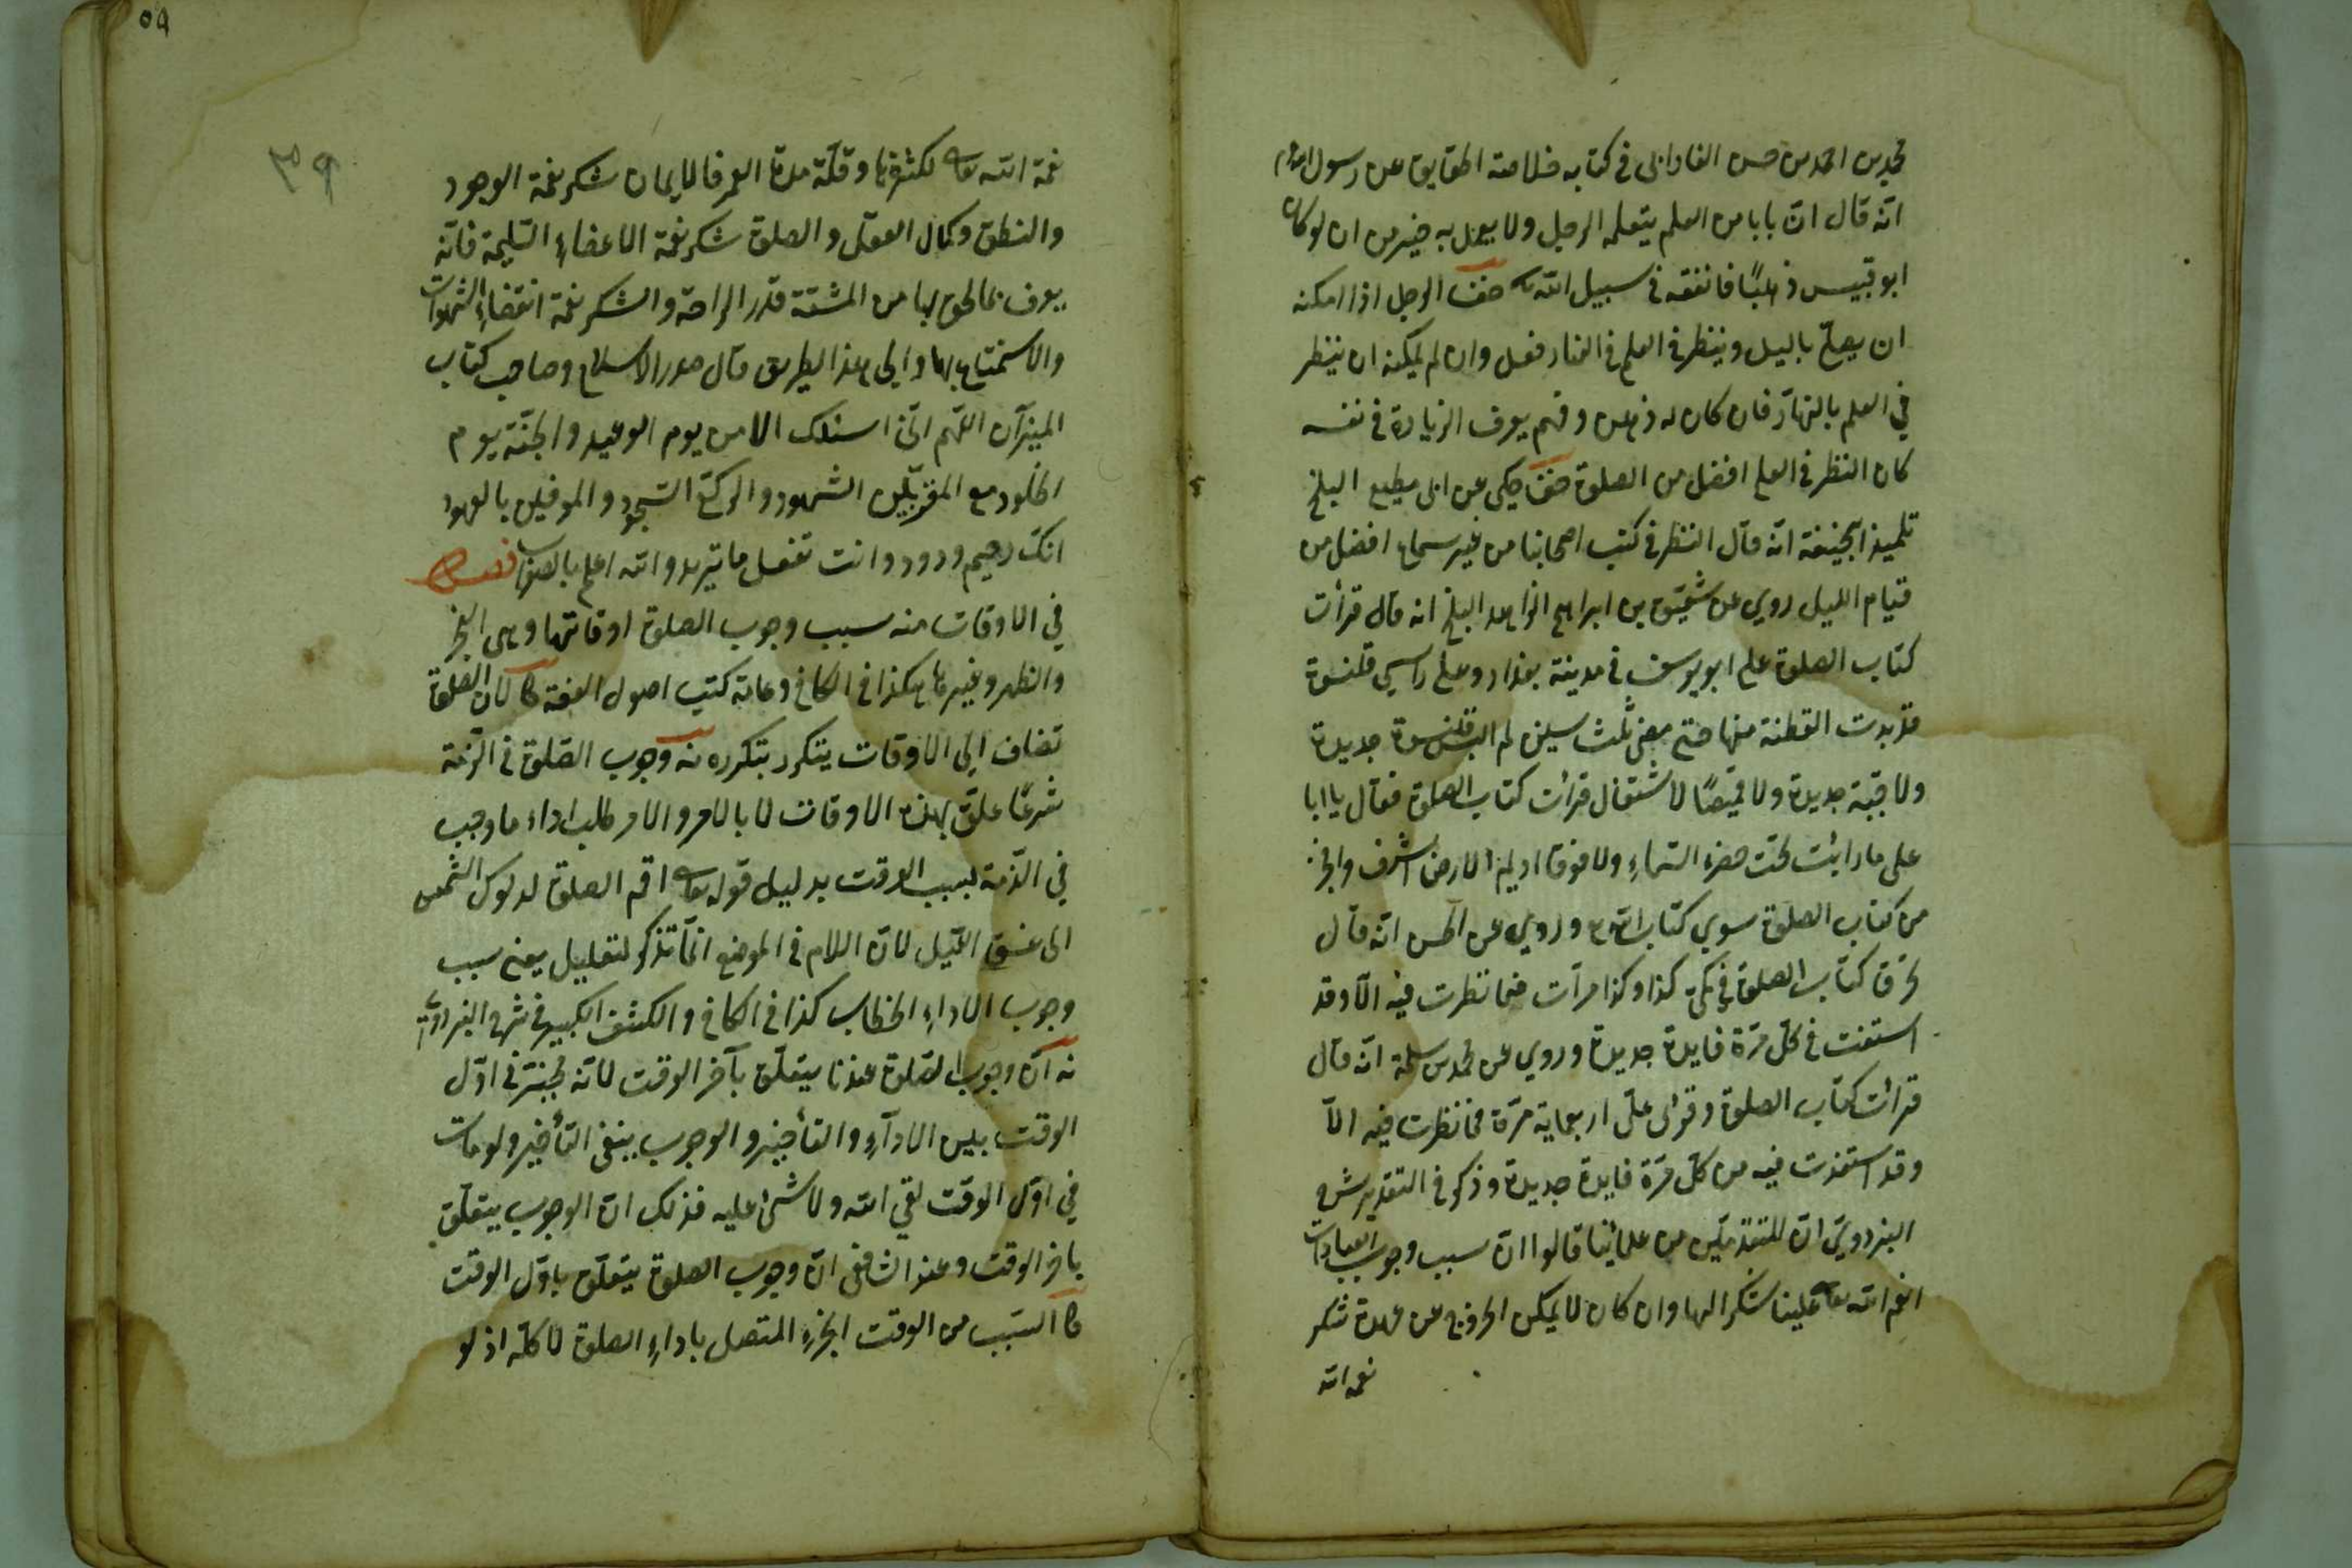 محمد بن احمد بن حسن الفارابى فى كتابه خلاصة الحقايق عن رسول الله عم
انّه قال انّ بابا من العلم يتعلمه الرجل ولا يعمل به خير من ان لو كان
ابو قبيس ذهبًا فانفقه فى سبيل الله تع خف الرجل اذا امكنه
ان يصلّي باليل وينظر فى العلم فى النهار فعل وان لم يمكنه ان ينظر
في العلم بالنهار فان كان له ذهن وفهم يعرف الزيادة فى نفسه
كان النظر فى العلم افضل من الصلوة خف حكى عن ابى مطيع البلخي
تلميذ ابيحنيفة انّه قال النظر فى كتب اصحابنا من غير سماع افضل من
قيام الليل روي عن شقيق بن ابراهيم الزاهد البلخي انه قال قرأت
كتاب الصلوة على ابو يوسف فى مدينة بغداد وعلى راسي قلنسوة
قد بدت القطنة منها حتى مضى ثلث سنين لم البس قلنسوة جديدة
ولا جبّة جديدة ولا قميصًا لاشتغال قرائت كتاب الصلوة فقال يا ابا
على ما رائت تحت خضرة السماءِ ولا فوق اديم الارض اشرف واخر
من كتاب الصلوة سوي كتاب الله تع وروي عن الحسن انّه قال
كتاب الصلوة في كمّي كذا وكذا مرآت فما نظرت فيه الّا وقد
استفدت فى كلّ مرّة فايدة جديدة وروي عن محمد بن سلمة انّه قال
قرائت كتاب الصلوة وقرئ علىّ اربعماية مرّة فما نظرت فيه الّا
وقد استفدت فيه من كلّ مرّة فايدة جديدة وذكر فى التقدير شرح
البزدويّ انّ المتقدّمين من علمائنا قالوا انّ سبب وجوب العبادات
انعم الله تعا علينا شكرا لها وان كان لا يمكن الخروج عن عهدة شكر
نعمة الله
٥٩
٣٩
نعمة الله تعا لكثرتها وقلّة مدة العمر فالايمان شكر نعمة الوجود
والنطق وكمال العقل والصلوة شكر نعمة الاعضاءِ السليمة فانّه
يعرف بما لحق لها من المشقة قدر الراحة والشكر نعمة اقتضاءِ الشهوات
والاستمتاع بها والى هذا الطريق مال صدر الاسلام وصاحب كتاب
الميزان اللّهم انّى اسئلك الامن يوم الوعيد والجنّة يوم
الخلود مع المقرّبين الشهود والركّع السجود والموفين بالعهود
انك رحيم ودود وانت تفعل ما تريد والله اعلم بالصواب فصل
في الاوقات منه سبب وجوب الصلوة اوقاتها وهى الفجر
والظهر وغيرها هكذا فى الكافى وعامة كتب اصول الفقه كا لانّ الصلوة
تضاف الى الاوقات يتكرر بتكرره نه وجوب الصّلوة فى الذّمة
شرعًا علّق بهذه الاوقات لا بالامر والامر طلب اداء ما وجب
في الذّمة بسبب الوقت بدليل قوله تعا اقم الصلوة لدلوك الشمس
الى غسق الليل لانّ اللام فى الموضع انّما تذكر لتعليل يعنى سبب
وجوب الاداءِ الخطاب كذا فى الكافى والكشف الكبير فى شرح البزدويّ
نه انّ وجوب الصّلوة عندنا يتعلّق بآخر الوقت لانّه مخيّر فى اوّل
الوقت بين الادآءِ والتأخير والوجوب ينفى التأخير ولو مات
في اوّل الوقت لقي الله ولا شئ عليه فذلك انّ الوجوب يتعلّق
باخر الوقت وعند الشافعى انّ وجوب الصلوة يتعلّق باوّل الوقت
كا السّبب من الوقت الجزءِ المتصل باداءِ الصلوة لا كلّه اذ لو